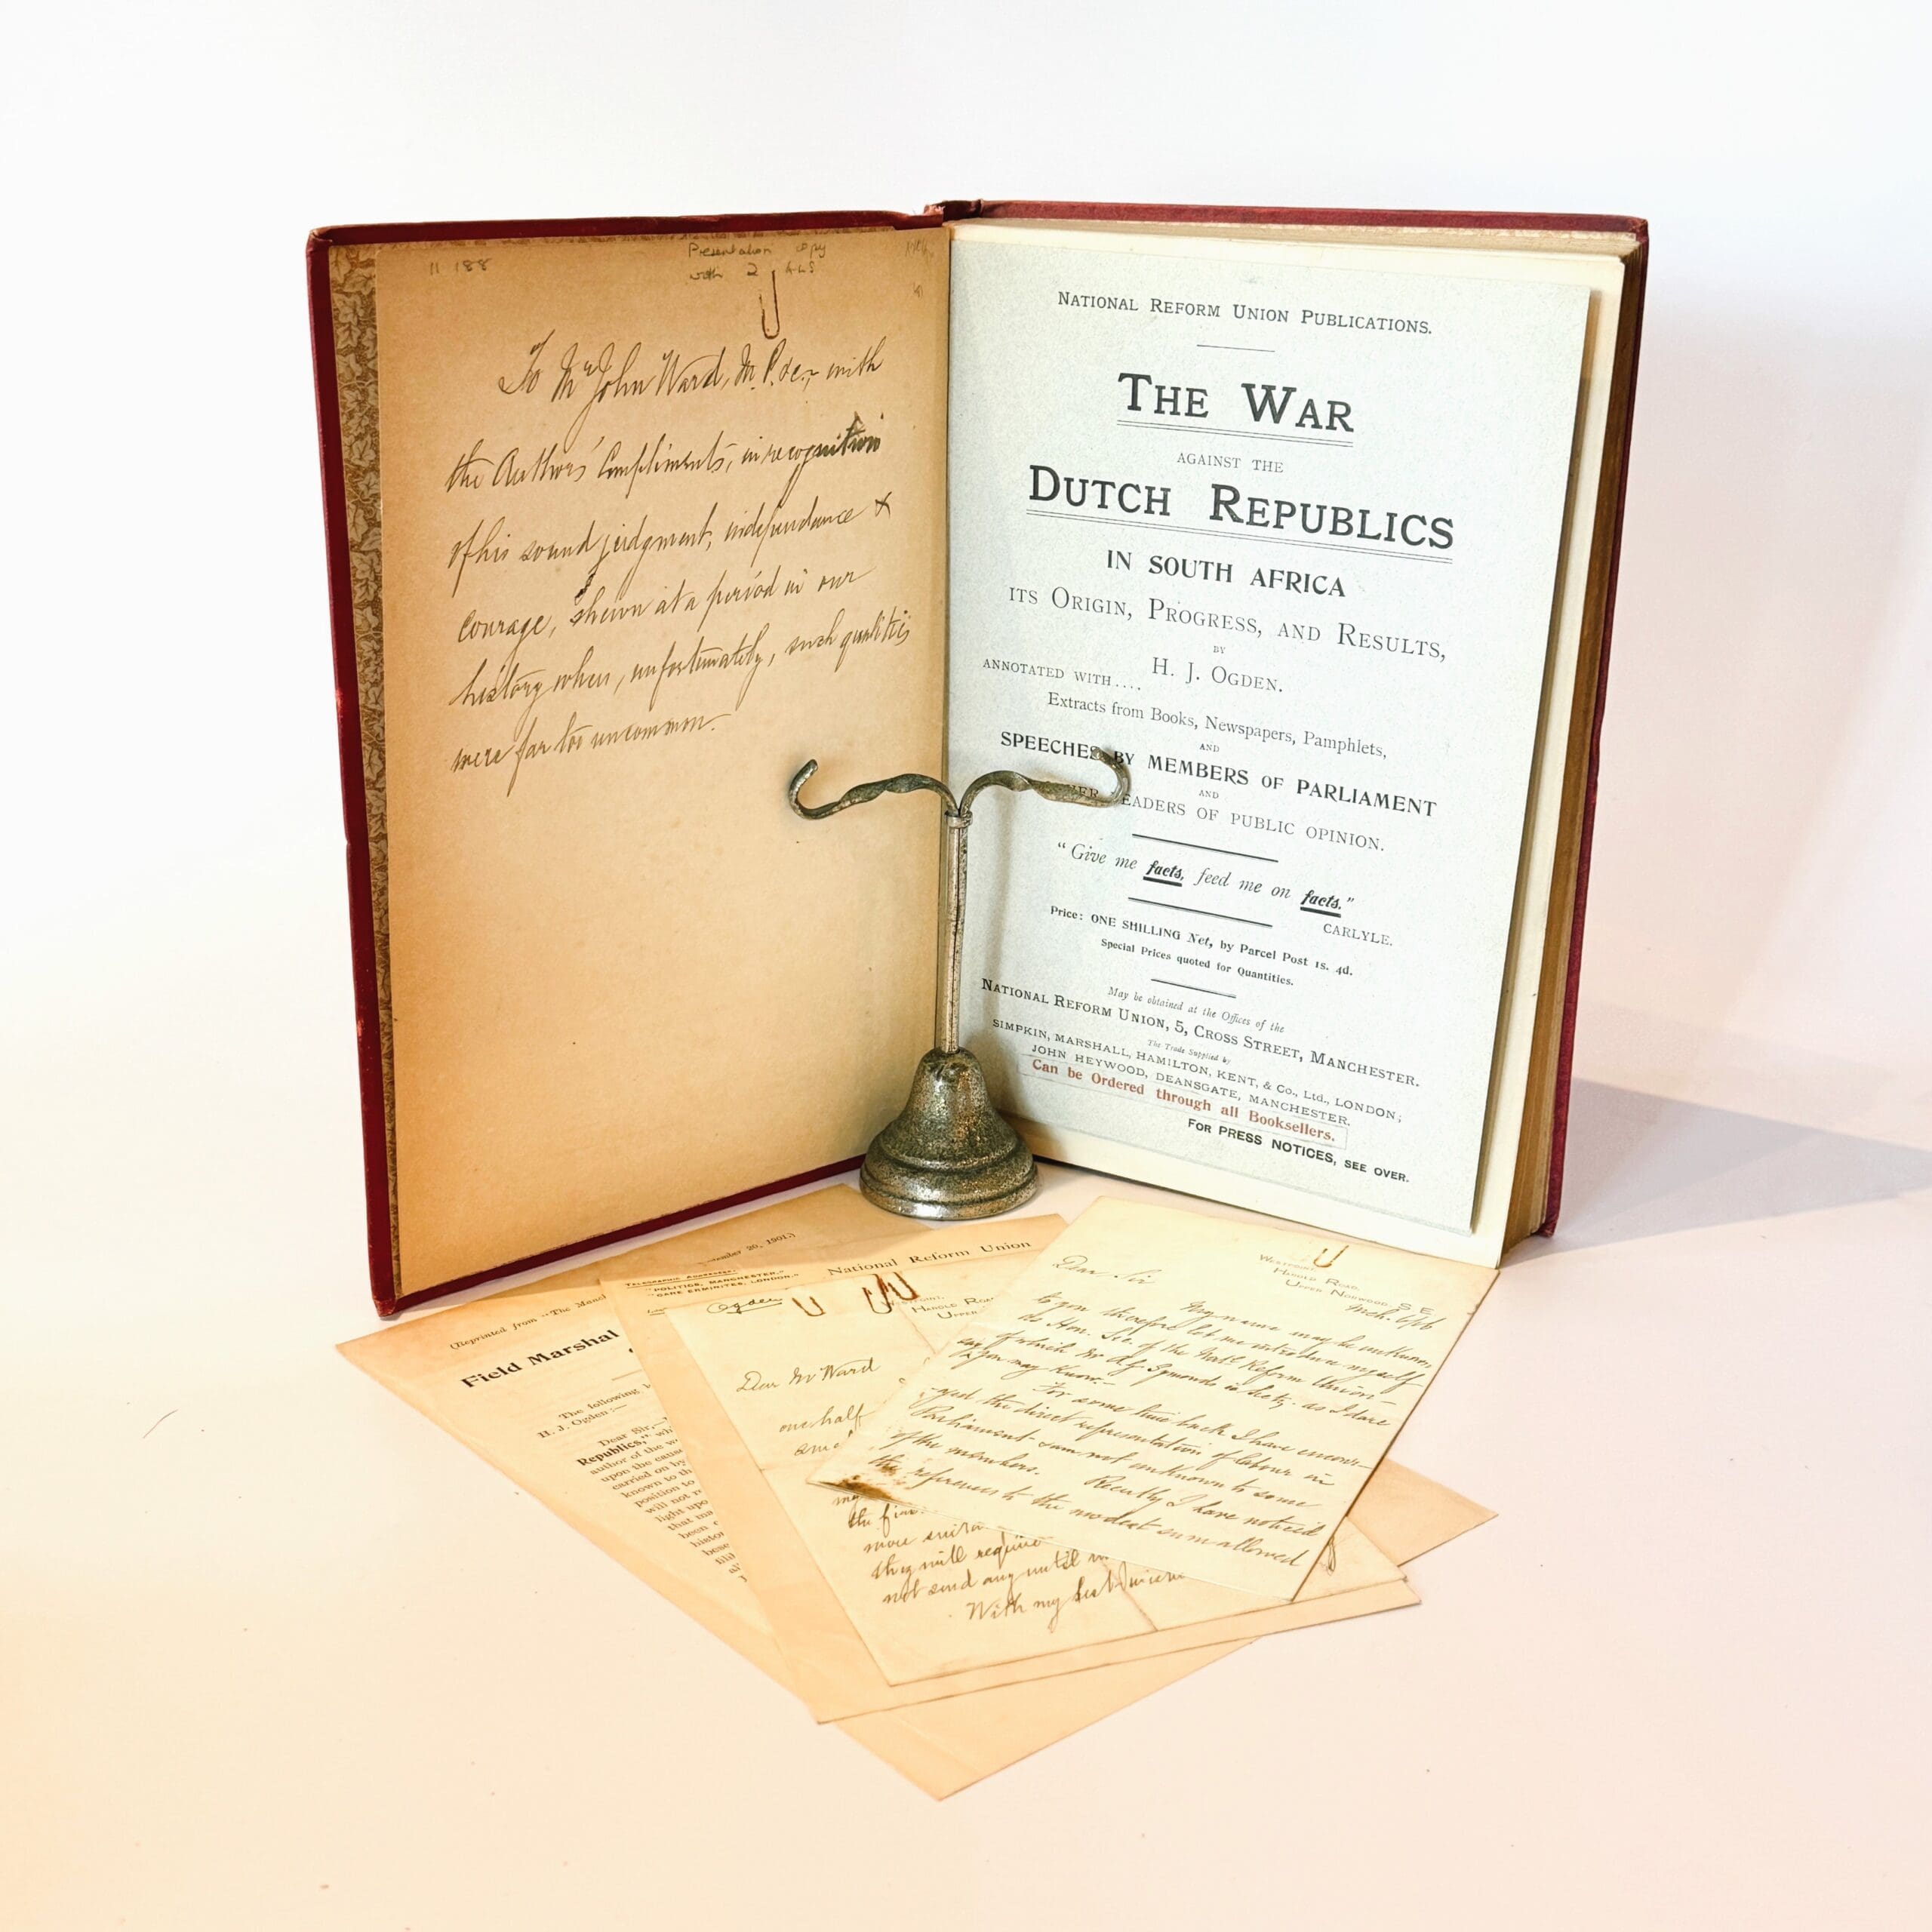 11 188
Presentation copy
with 2 ALS
To Mr John Ward, M.P. &c., with
the Authors' Compliments, in recognition
of his sound judgment, independance &
courage, shewn at a period in our
history when, unfortunately, such qualities
were far too uncommon.
NATIONAL REFORM UNION PUBLICATIONS.
THE WAR
AGAINST THE
DUTCH REPUBLICS
IN SOUTH AFRICA
ITS ORIGIN, PROGRESS, AND RESULTS,
BY
H. J. OGDEN.
ANNOTATED WITH....
Extracts from Books, Newspapers, Pamphlets,
AND
SPEECHES BY MEMBERS OF PARLIAMENT
AND
LEADERS OF PUBLIC OPINION.
"Give me facts, feed me on facts."
CARLYLE.
Price: ONE SHILLING Net, by Parcel Post 1s. 4d.
Special Prices quoted for Quantities.
May be obtained at the Offices of the
NATIONAL REFORM UNION, 5, CROSS STREET, MANCHESTER.
The Trade Supplied by
SIMPKIN, MARSHALL, HAMILTON, KENT, & Co., Ltd., LONDON;
JOHN HEYWOOD, DEANSGATE, MANCHESTER.
Can be Ordered through all Booksellers.
FOR PRESS NOTICES, SEE OVER.
(Reprinted from "The Manch
tember 26, 1901.)
Field Marshal
The following l
H. J. Ogden:—
Dear Sir,—
Republics," wh
author of the w
upon the cause
carried on by
known to th
position to
will not r
light upo
that ma
been
histo
TELEGRAPHIC ADDRESSES:
"POLITICS, MANCHESTER."
"CARE ERMINITES, LONDON."
National Reform Union
Ogden
WESTPOINT,
HAROLD ROA
UPPER
Dear Mr Ward
one half
my
the fin
more
they will require
not send any until
With my best
WESTPOINT,
HAROLD ROAD,
UPPER NORWOOD, S.E.
Mch. 6/06
Dear Sir
My name may be unknown
to you therefore let me introduce myself
as Hon. Sec. of the Natl Reform Union
of which Mr Alf Symonds is Secty. as I dare
say you may know.
For some time back I have encour-
aged the direct representation of labour in
Parliament & am not unknown to some
of the members. Recently I have noticed
the references to the modest sum allowed